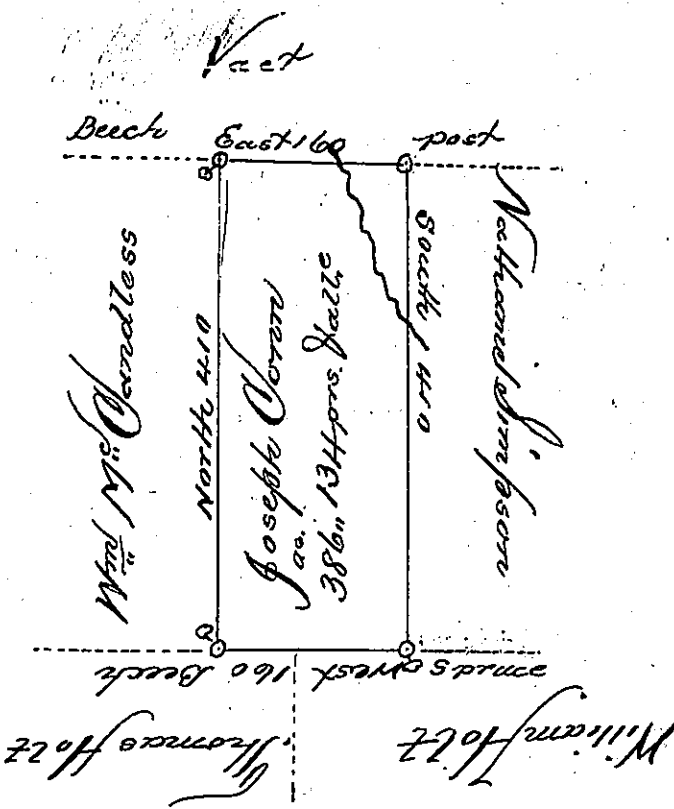 Vact
Beech East 160 post
Wm. McCandless
North 410
Joseph Conn
ac.
386 „ 134 prs. & allce
South 410
Nathaniel Simpson
a
a
West 160 Beech
Thomas Holtz
William Holtz